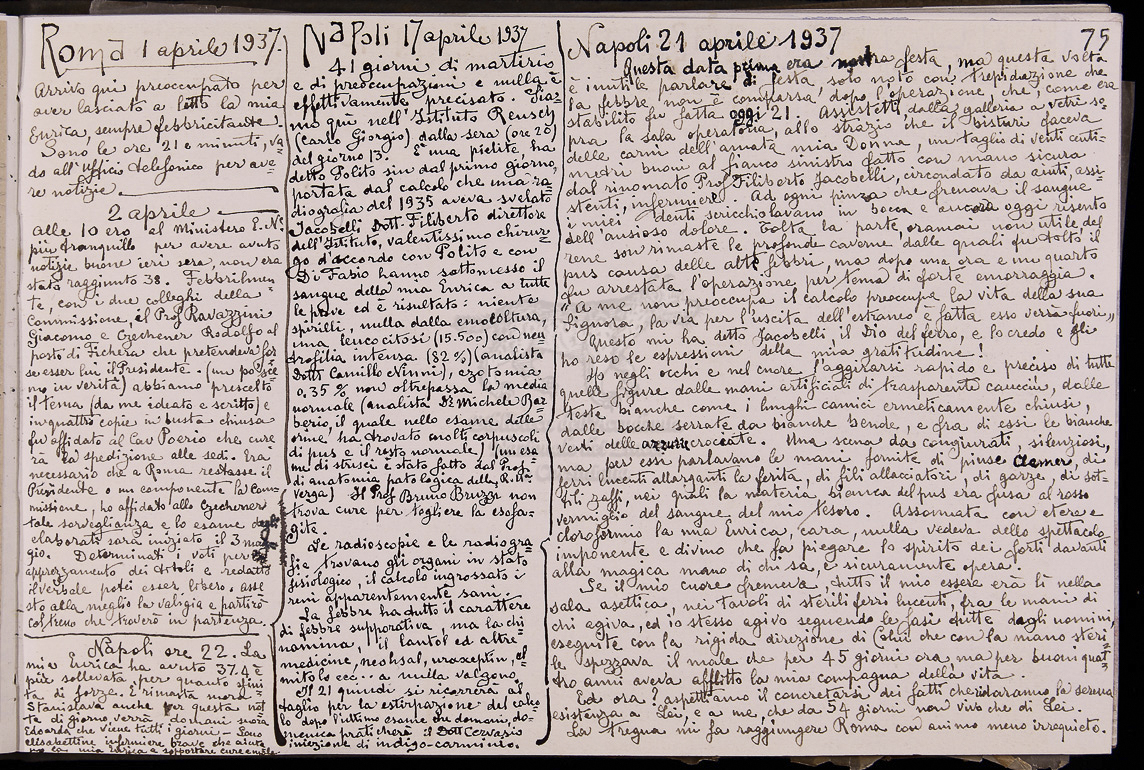 Roma 1 aprile 1937.
Arrivo qui preoccupato per
aver lasciato a letto la mia
Enrica, sempre febbricitante.
Sono le ore 21 e minuti, va
do all'ufficio telefonico per ave=
re notizie.
2 aprile
Alle 10 ero al Ministero E. N.
più tranquillo per avere avuto
notizie buone ieri sera, non era
stato raggiunto 38. Febbrilmen=
te, con i due colleghi della
Commissione, il Prof Ravazzini
Giacomo e Czechener Rodolfo al
posto di Fichera che pretendeva for
se esser lui il Presidente - (un po' sce
mo in verità) abbiamo prescelto
il tema (da me ideato e scritto) e
in quattro copie in busta chiusa
fu affidato al Cav Poerio che cure
rà la spedizione alle sedi. Era
necessario che a Roma restasse il
Presidente o un componente la Com=
missione, ho affidato allo Czechener
tale sorveglianza e lo esame degli
elaborati sarà iniziato il 3 mag
gio. Determinati i voti per
apprezzamento dei titoli e redatto
il verbale potei esser libero. Asse
sto alla meglio la valigia e partirò
col treno che troverò in partenza.
Napoli ore 22. La
mia Enrica ha avuto 37.4 è
più sollevata per quanto sfini=
ta di forze. È rimasta
Stanislava anche per questa not
te di giorno verrà domani suora
Edoarda che viene tutti i giorni - Sono
elisabettine infermiere brave che aiuta
no la mia Enrica a sopportare cure e mali
Napoli 17 aprile 1937
41 giorni di martirio
e di preoccupazioni e nulla è
effettivamente precisato. Sia=
mo quì nell'Istituto Reusch
(Carlo Giorgio) dalla sera (ore 20)
del giorno 13. È una pielite, ha
detto Polito sin dal primo giorno,
portata dal calcolo che una ra=
diografia del 1935 aveva svelato
Jacobelli Dott. Filiberto direttore
dell'Istituto, valentissimo chirur=
go d'accordo con Polito e con
Di Fabio hanno sottomesso il
sangue della mia Enrica a tutte
le prove ed è risultato: niente
spirilli, nulla dalla emocoltura,
una leucocitosi (15.500) con neu=
trofilia intensa (82%) (analista
Dott Camillo Ninni), azotemia
0.35% non oltrepassa la media
normale (analista Dr Michele Bar=
berio, il quale nello esame delle
orine ha trovato molti corpuscoli
di pus e il resto normale) (un esa
me di strisci è stato fatto dal Prof.
di anatomia patologica della R.U.
Verga) Il Prof Bruno Bruzzi non
trova cure per togliere la esofa=
gite.
Le radioscopie e le radiogra=
fie trovano gli organi in stato
fisiologico, il calcolo ingrossato i
reni apparentemente sani.
La febbre ha tutto il carattere
di febbre supporativa ma la chi
namina, il lantol ed altre
medicine, neohsal, uraseptin, el
mitolo ecc.. a nulla valgono.
Il 21 quindi si ricorrerà al
taglio per la estirpazione del calco
lo dopo l'ultimo esame che domani, do=
menica praticherà il Dott Cervasio
iniezione di indigo-carminio.
75
Napoli 21 aprile 1937
Questa data prima era nostra festa, ma questa volta
è inutile parlare di festa, solo noto con trepidazione che
la febbre non è comparsa, dopo l'operazione, che, come era
stabilito fu fatta oggi 21. Assistetti, dalla galleria a vetri so=
pra la sala operatoria, allo strazio che il bisturi faceva
delle carni dell'amata mia Donna, un taglio di venti centi=
metri buoni al fianco sinistro fatto con mano sicura
dal rinomato Prof Filiberto Jacobelli, circondato da aiuti, assi=
stenti, infermiere. Ad ogni pinza che frenava il sangue
i miei denti scricchiolavano in bocca e ancora oggi risento
dell'ansioso dolore. Tolta la parte, oramai non utile del
rene son rimaste le profonde caverne dalle quali fu tolto il
pus causa delle alte febbri, ma dopo una ora e un quarto
fu arrestata l'operazione per tema di forte emorraggia.
"A me non preoccupa il calcolo preoccupa la vita della sua
Signora, la via per l'uscita dell'estraneo è fatta esso verrà fuori"
Questo mi ha detto Jacobelli, il Dio del ferro, e lo credo e gli
ho reso le espressioni della mia gratitudine!
Ho negli occhi e nel cuore l'aggirarsi rapido e preciso di tutte
quelle figure dalle mani artificiali di trasparente caucciù, dalle
teste bianche come i lunghi camici ermeticamente chiusi,
dalle bocche serrate da bianche bende, e fra di essi le bianche
vesti delle azzurre crociate. Una scena da congiurati, silenziosi,
ma per essi parlavano le mani fornite di pinse Aemer, di
ferri lucenti allarganti la ferita, di fili allacciatori, di garze, di sot=
tili zaffi, nei quali la materia bianca del pus era fusa al rosso
vermiglio del sangue del mio tesoro. Assonnata con etere e
cloroformio la mia Enrica, cara, nulla vedeva dello spettacolo
imponente e divino che fa piegare lo spirito dei forti davanti
alla magica mano di chi sa, e sicuramente opera.
Se il mio cuore fremeva, tutto il mio essere era lì nella
sala asettica, nei tavoli di sterili ferri lucenti, fra le mani di
chi agiva, ed io stesso agivo seguendo le fasi tutte dagli uomini
eseguite con la rigida direzione di Colui che con la mano steri
le spezzava il male che per 45 giorni ora, ma per buoni quat=
tro anni aveva afflitto la mia compagna della vita.
Ed ora? aspettiamo il concretarsi dei fatti che ridaranno la serena
esistenza a Lei, e a me, che da 54 giorni non vivo che di Lei.
La tregua mi fa raggiungere Roma con animo meno irrequieto.